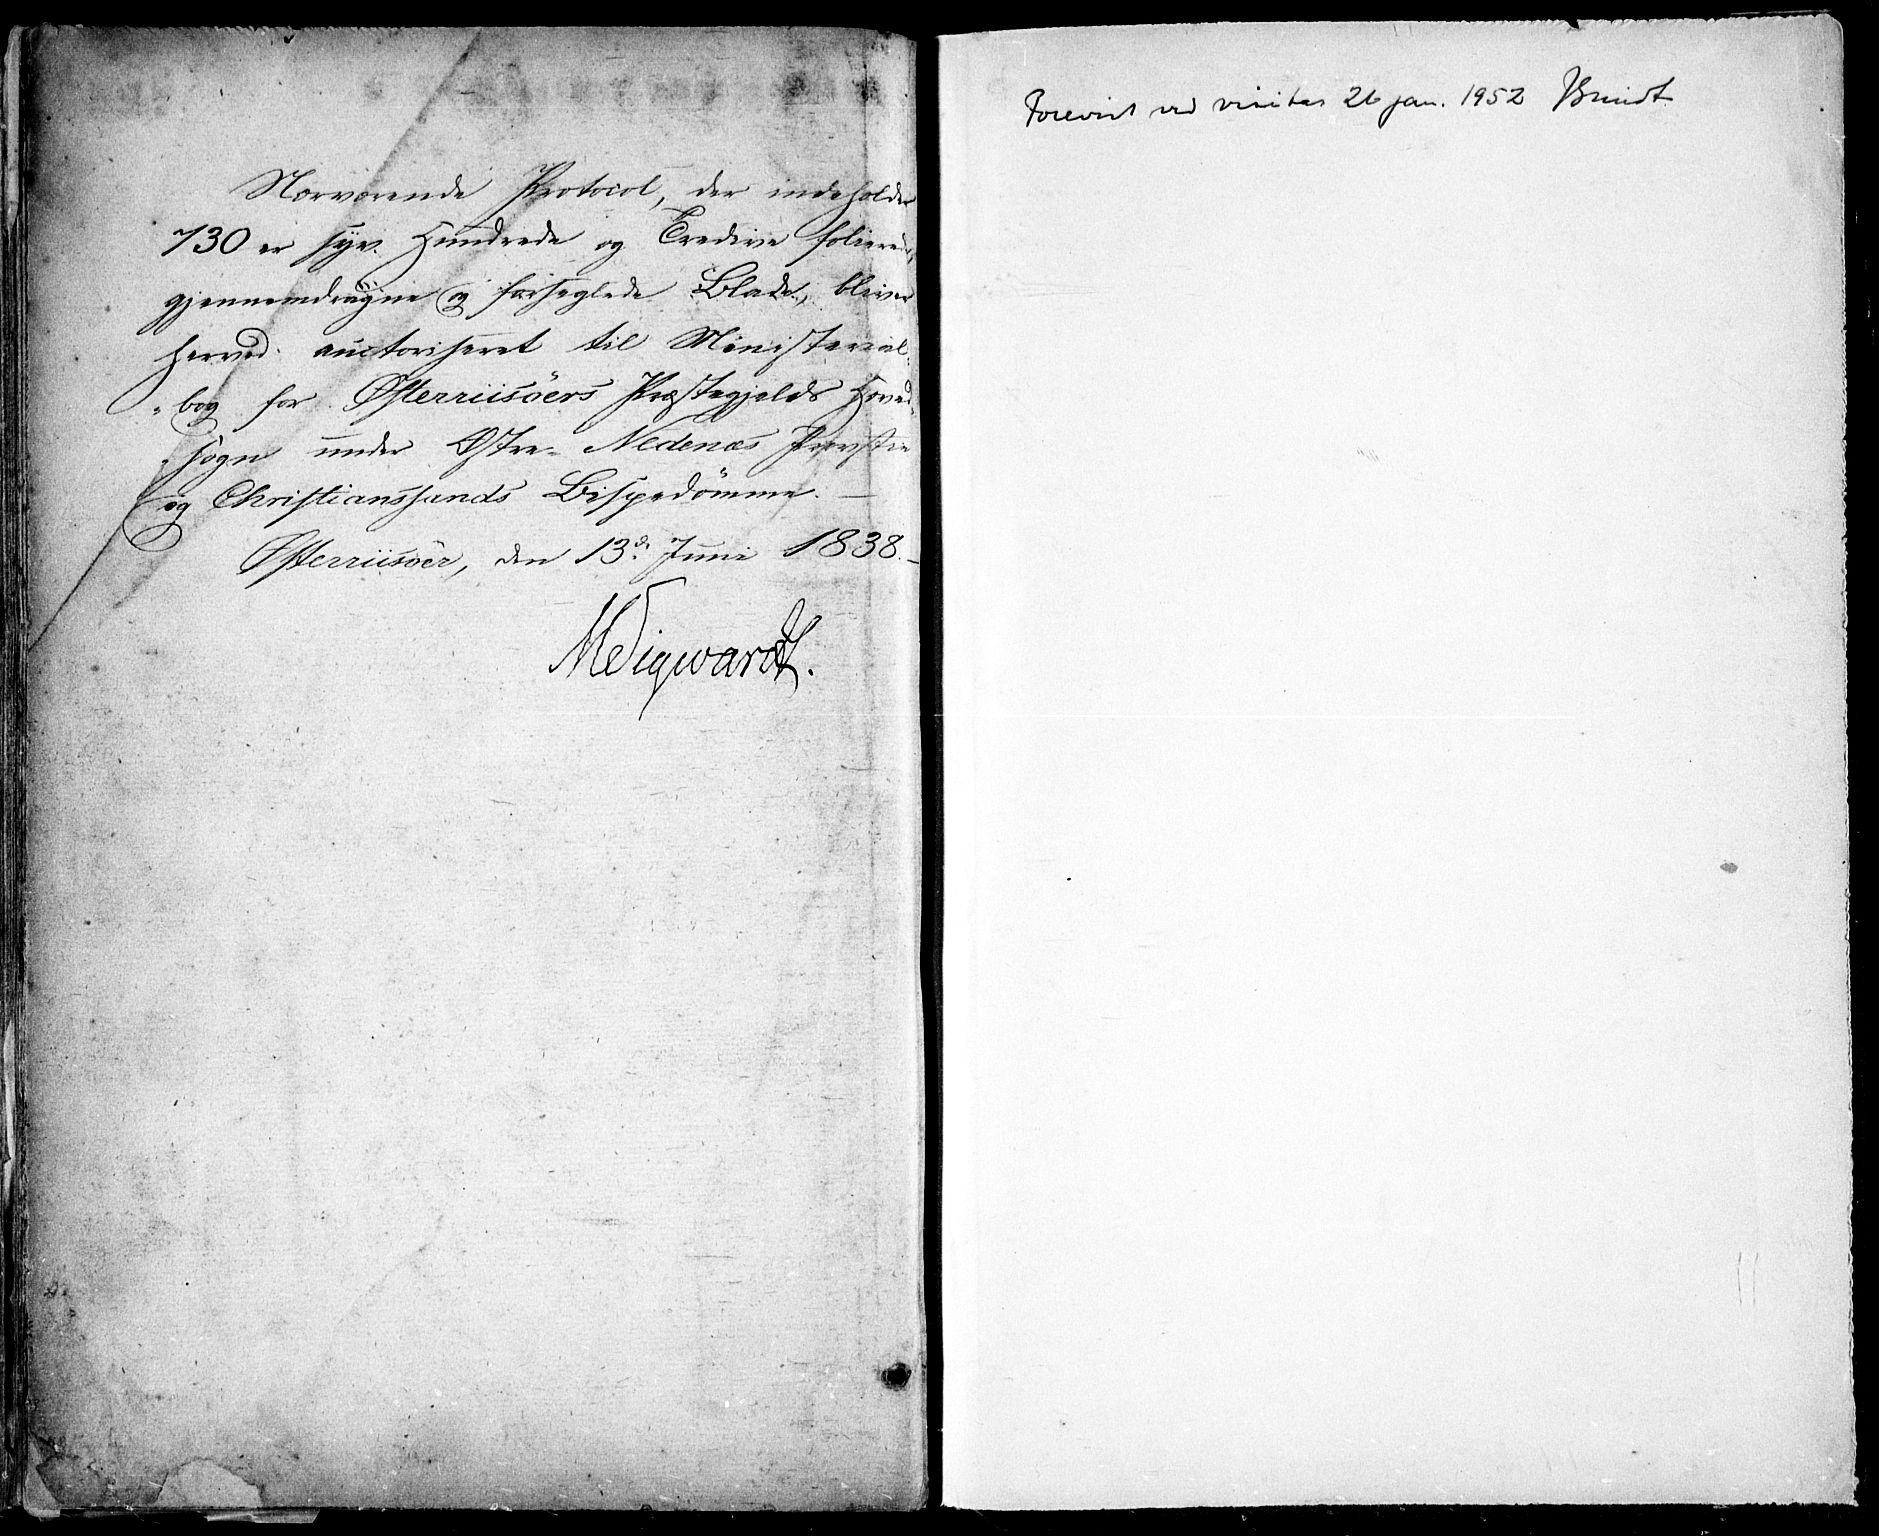 Nærværende Protocol, der indeholder
730 er syv Hundrede og Tredive folierede,
gjennemdragne og forseglede Blade, bliver
herved auctoriseret til Ministerial-
-bog for Østerriisöers Præstegjelds Hoved-
-sogn under Østre-Nedenæs Provstie
og Christianssands Bispedömme. —
Østerriisöer, den 13de Juni 1838. —
Forevist ved visitas 26 jan. 1952